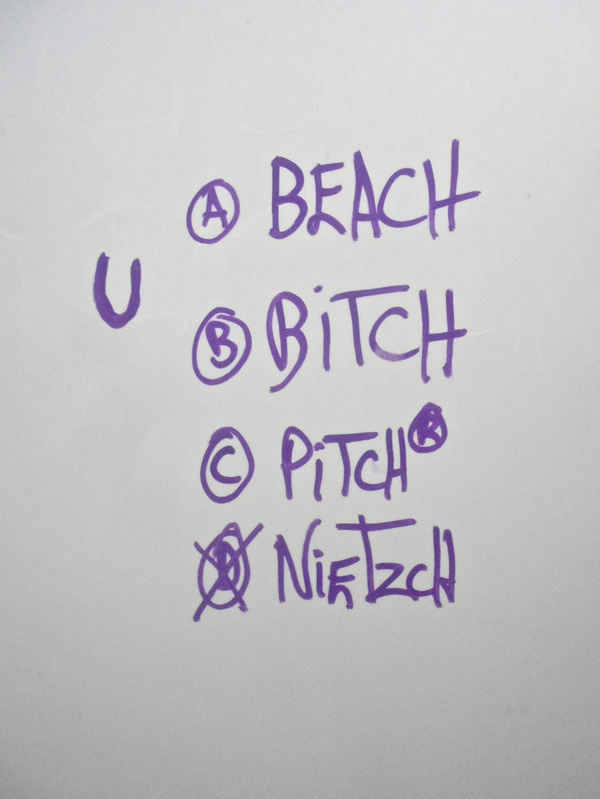 A BEACH
U
B BiTCH
C PiTCH®
D NiETZCH